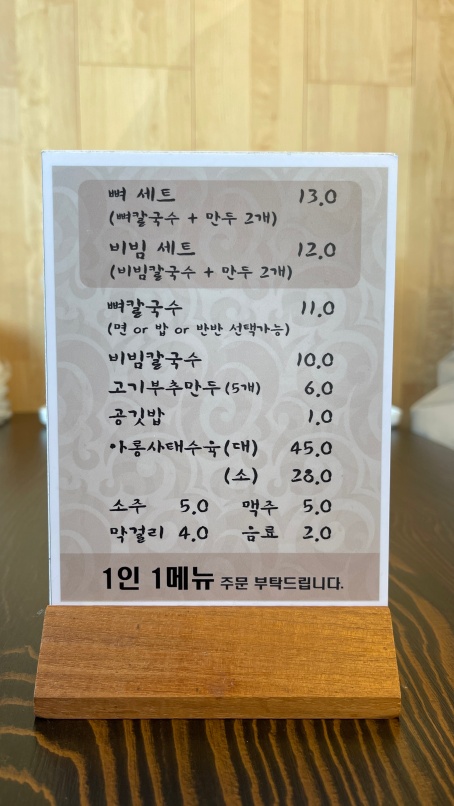 뼈 세트 13.0
(뼈칼국수 + 만두 2개)
비빔 세트 12.0
(비빔칼국수 + 만두 2개)
뼈칼국수 11.0
(면 or 밥 or 반반 선택가능)
비빔칼국수 10.0
고기부추만두(5개) 6.0
공깃밥 1.0
아롱사태수육(대) 45.0
(소) 28.0
소주 5.0 맥주 5.0
막걸리 4.0 음료 2.0
1인 1메뉴 주문 부탁드립니다.